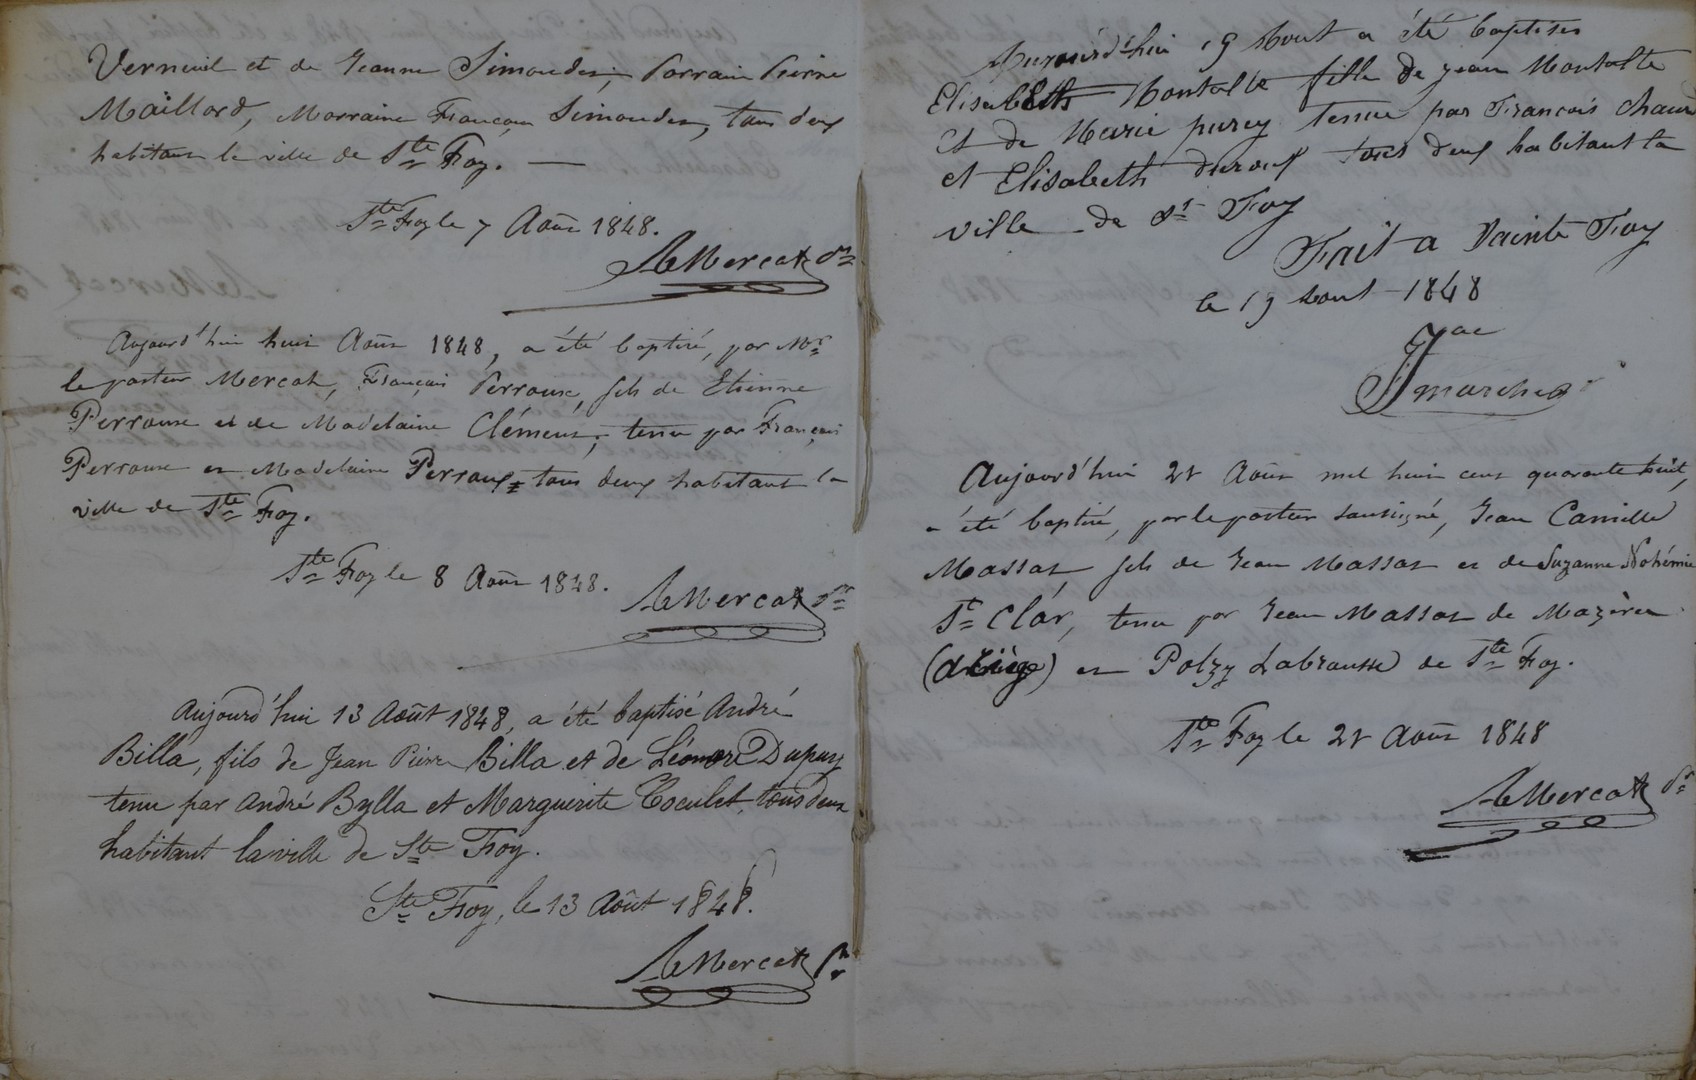 Verneuil et de Jeanne Simondes; Parrain Pierre
Maillard, Marraine Françoise Simondes, tous deux
habitant la ville de Ste Foy. —
Ste Foy le 7 Août 1848.
A. Mercat Pr
Aujourd'hui huit Août 1848, a été baptisé, par Mr
le pasteur Mercat, François Perroux, fils de Etienne
Perroux et de Madelaine Clément, tenu par François
Perroux et Madelaine Perroux tous deux habitant la
ville de Ste Foy.
Ste Foy le 8 Août 1848.
A. Mercat Pr
Aujourd'hui 13 Août 1848, a été baptisé André
Billa, fils de Jean Pierre Billa et de Léonore Dupuy
tenu par André Bylla et Marguerite Coculet, tous deux
habitant la ville de Ste Foy.
Ste Foy, le 13 Août 1848.
A. Mercat Pr
19 Aout a été baptiser
Elisabeth Montalte fille de jean Montalte
et de Marie purey tenue par François
et Elisabeth tous deux habitant la
ville de St Foy
Fait a Sainte Foy
le 19 Aout 1848
Aujourd'hui 21 Août mil huit cent quarante huit,
a été baptisé, par le pasteur soussigné, Jean Camille
Massat, fils de Jean Massat et de Suzanne Nohémie
St Clar, tenu par Jean Massat de Mazères
(Ariège) et Polxy Labrousse de Ste Foy.
Ste Foy le 21 Août 1848
A. Mercat Pr